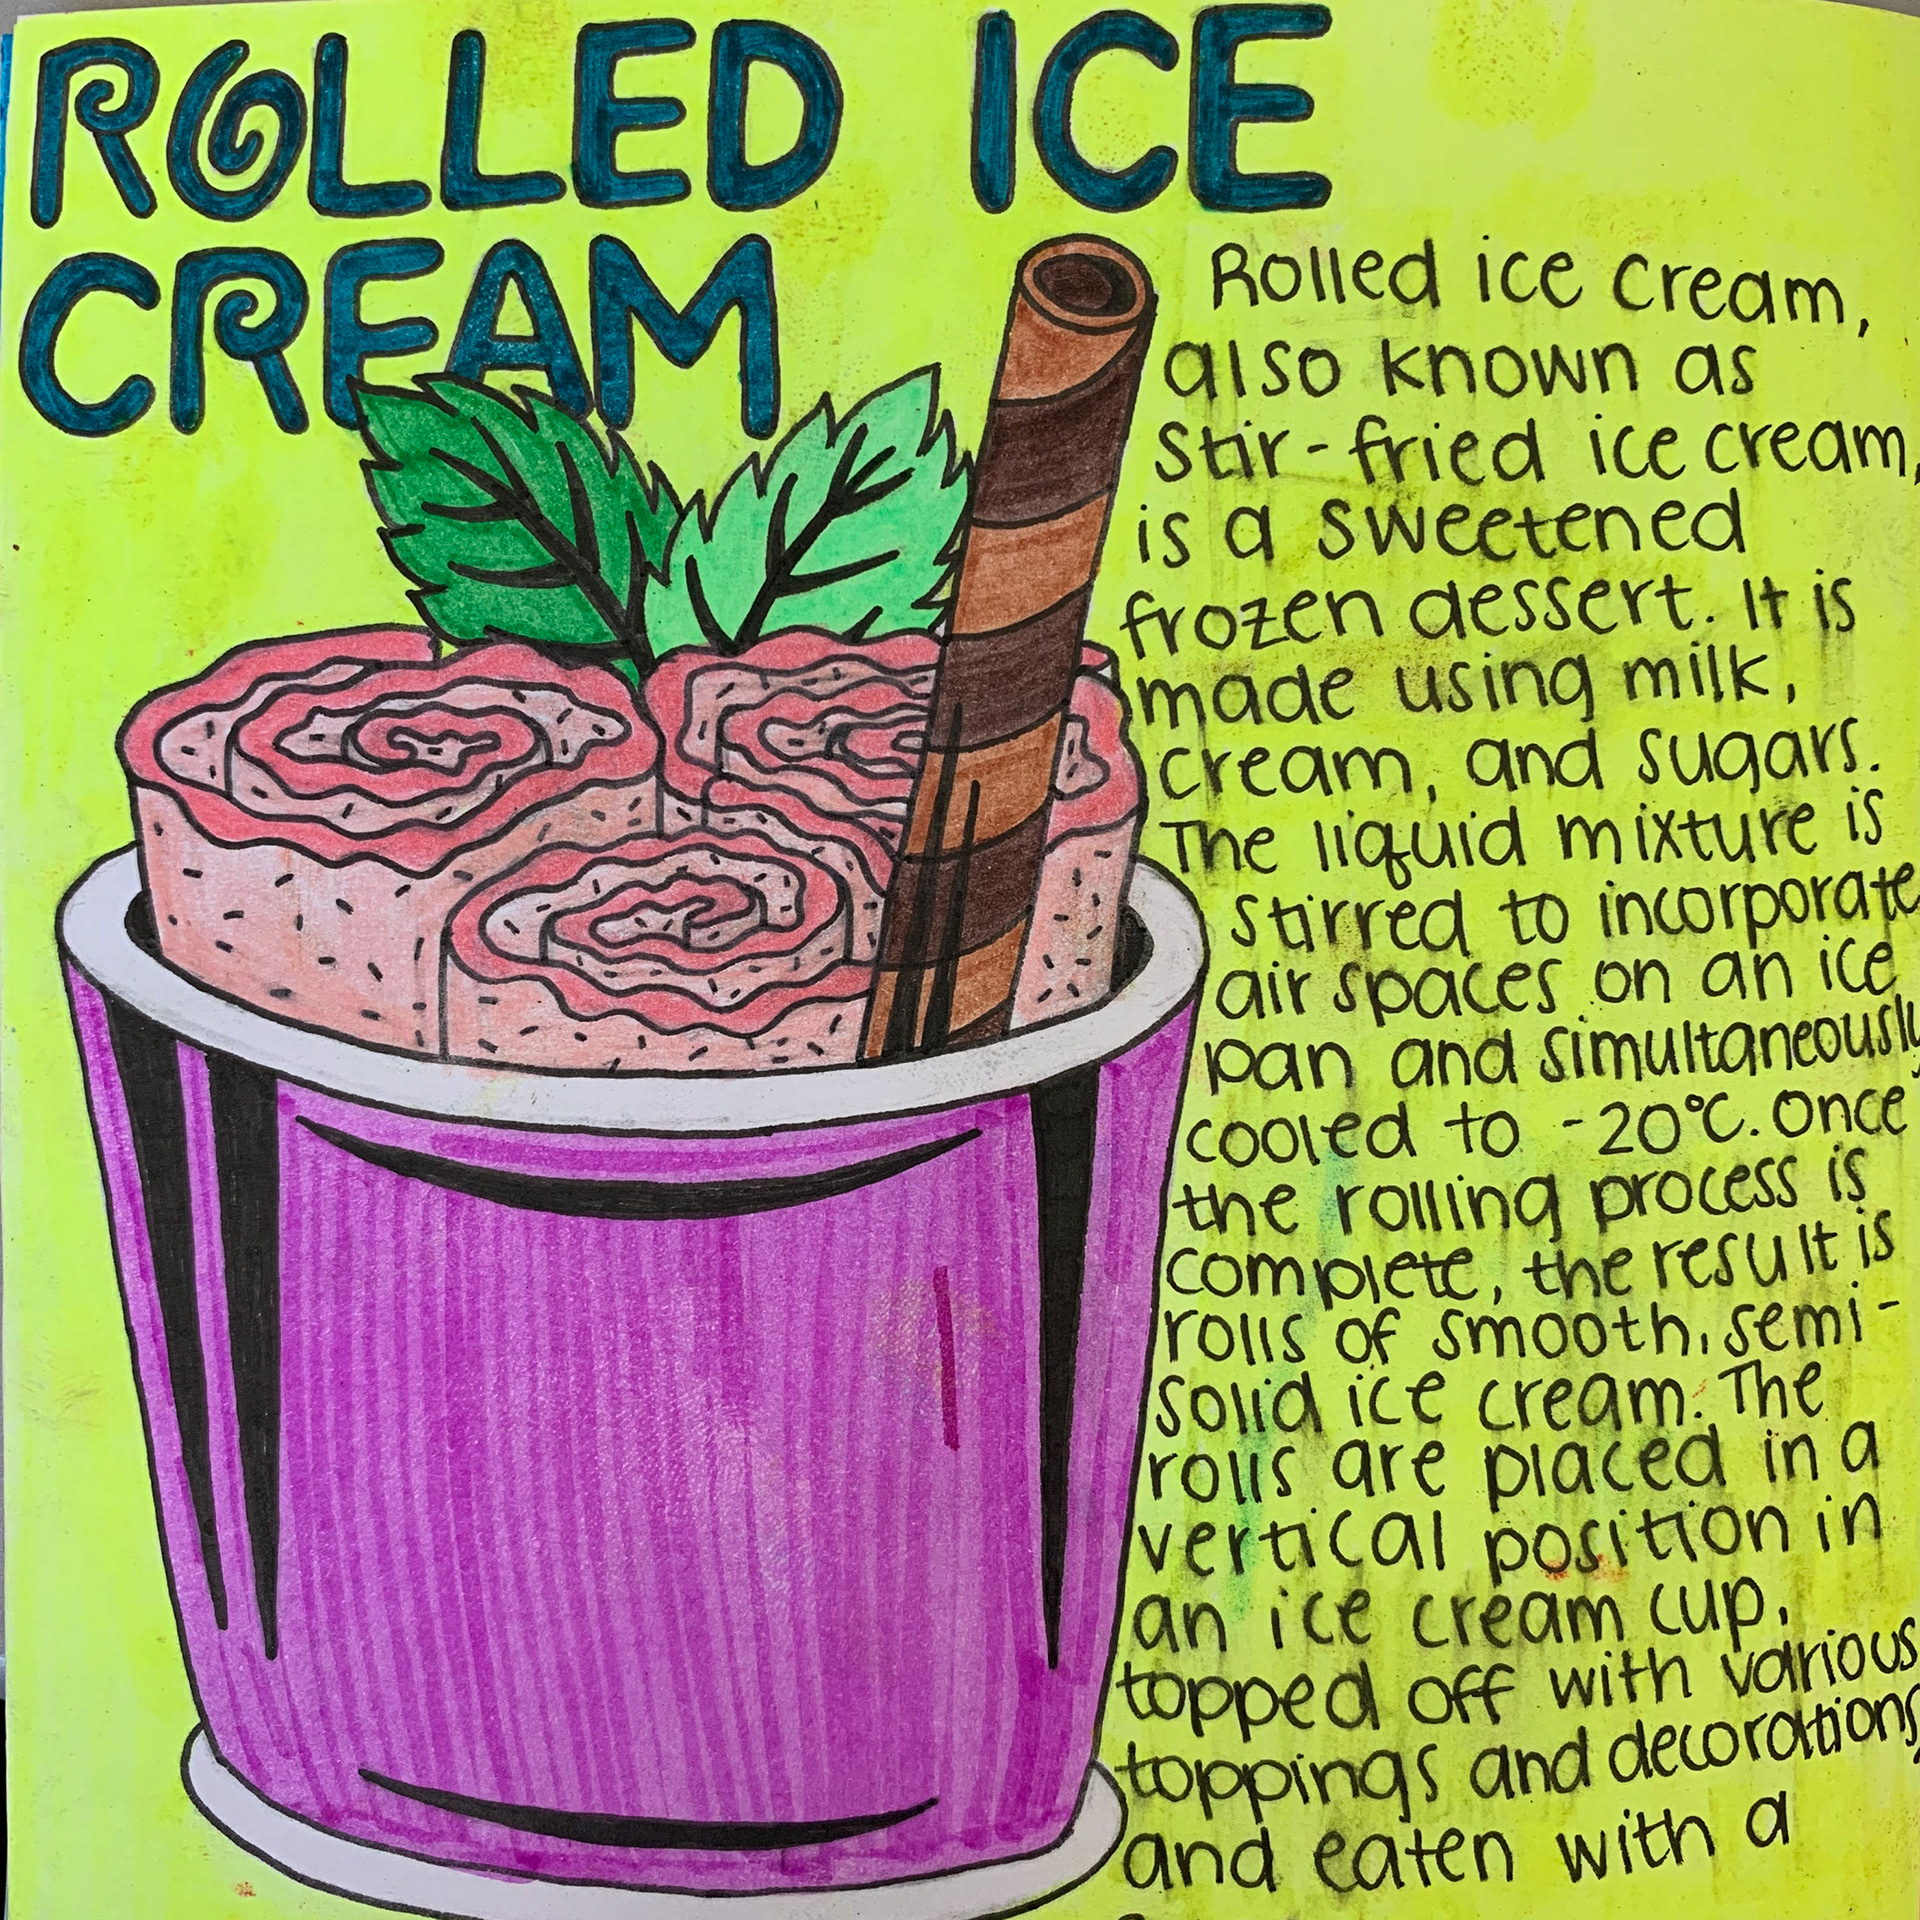 ROLLED ICE
CREAM
Rolled ice cream,
also known as
stir-fried ice cream,
is a sweetened
frozen dessert. It is
made using milk,
cream, and sugars.
The liquid mixture is
stirred to incorporate
air spaces on an ice
pan and simultaneously
cooled to -20°C. Once
the rolling process is
complete, the result is
rolls of smooth, semi-
solid ice cream. The
rolls are placed in a
vertical position in
an ice cream cup,
topped off with various
toppings and decorations,
and eaten with a